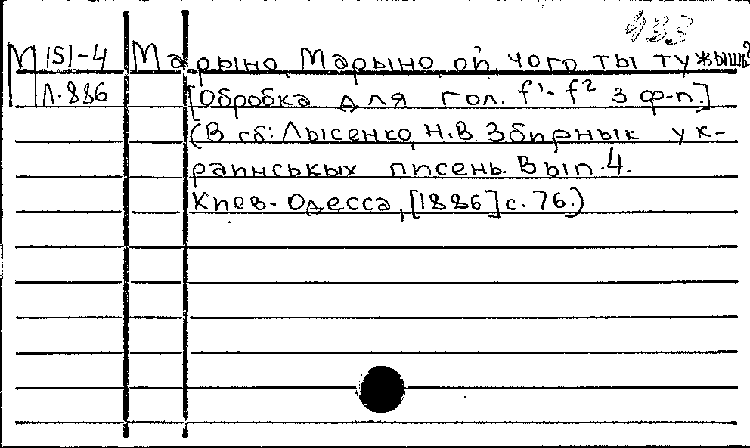 933
М 151-4 Марыно, Марыно, ой чого ты тужышь?
Л.886 [Обробка для гол. f¹- f² з ф-п.]
(В сб: Лысенко, Н.В Збирнык ук-
раинськых писень. Вып. 4.
Киев-Одесса, [1886] с. 76.)